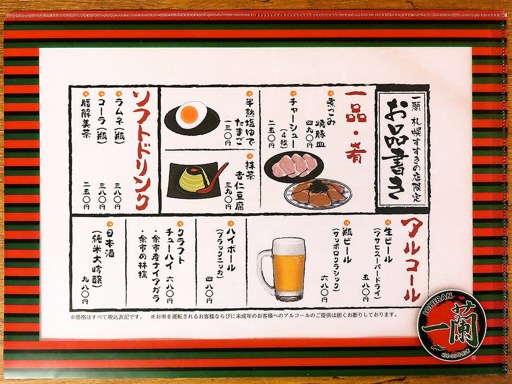 一蘭 札幌すすきの店限定
お品書き
一品・肴
煮こみ焼豚皿
四九〇円
チャーシュー(4枚)
二五〇円
半熟塩ゆでたまご
一五〇円
抹茶杏仁豆腐
三九〇円
ソフトドリンク
ラムネ(瓶)
三八〇円
コーラ(瓶)
三八〇円
脂解美茶
二五〇円
アルコール
生ビール
(アサヒスーパードライ)
五八〇円
瓶ビール
(サッポロクラシック)
六八〇円
ハイボール
(ブラックニッカ)
四八〇円
クラフトチューハイ
六八〇円
・余市産ナイアガラ
・余市の林檎
日本酒
(純米大吟醸)
九八〇円
※価格はすべて税込表記です。 ※お車を運転されるお客様ならびに未成年のお客様へのアルコールのご提供は固くお断りしております。
ICHIRAN
一蘭